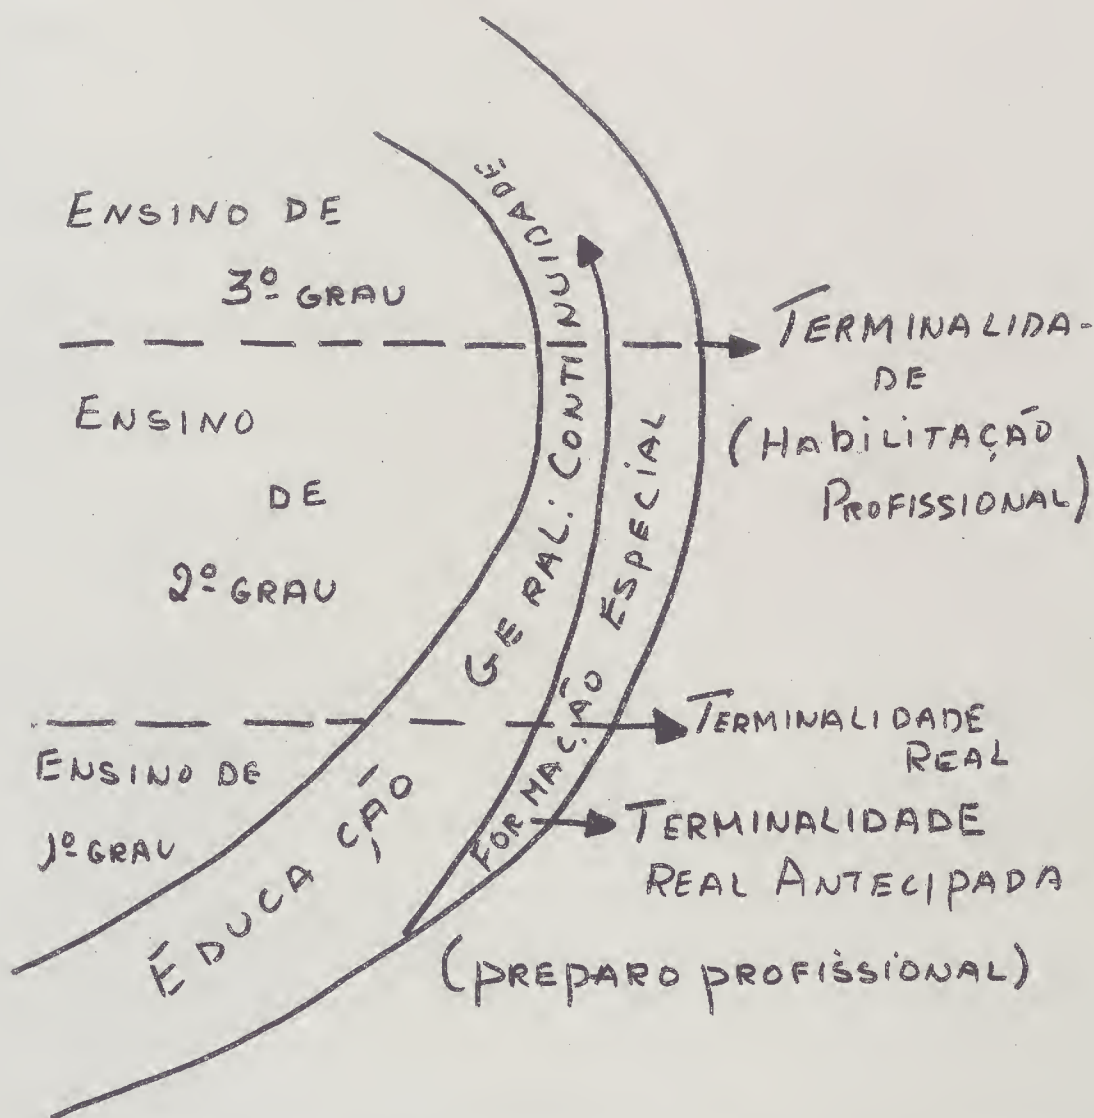 ENSINO DE
3º GRAU
ENSINO
DE
2º GRAU
ENSINO DE
1º GRAU
EDUCAÇÃO GERAL: CONTINUIDADE
FORMAÇÃO ESPECIAL
TERMINALIDA-
DE
(HABILITAÇÃO
PROFISSIONAL)
TERMINALIDADE
REAL
TERMINALIDADE
REAL ANTECIPADA
(PREPARO PROFISSIONAL)